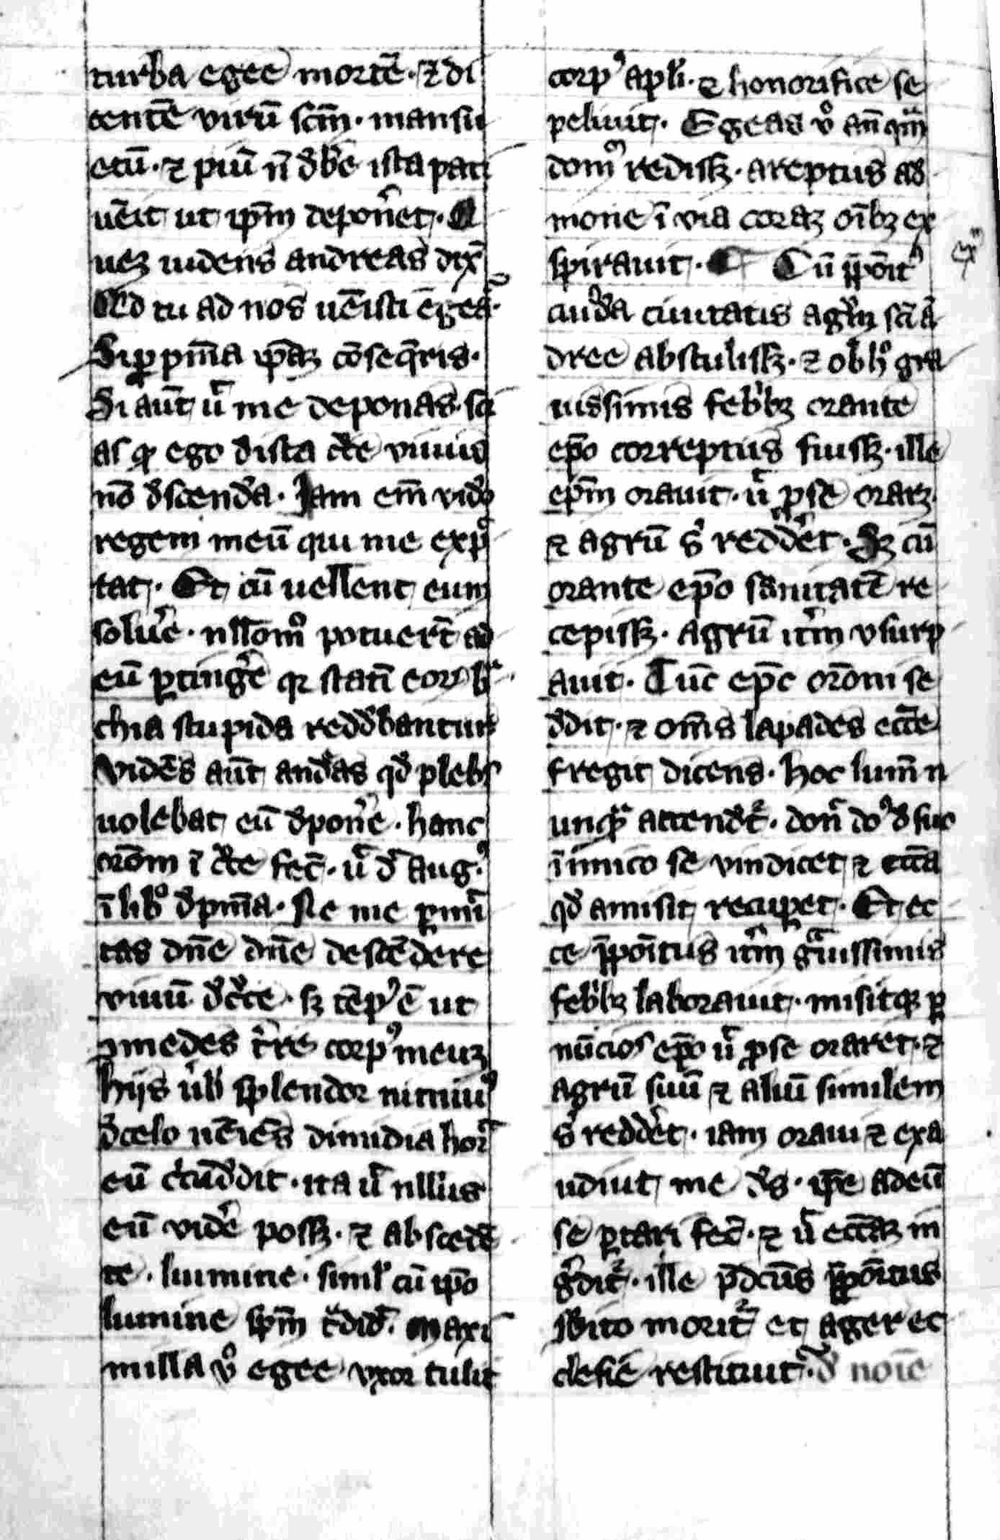 turba egee mortē · ⁊ di
centē virū scm̄ · mansu
etū · ⁊ piū nō dbē ista pati
uēit ut ipm̄ depon̄et · A
uez uidens andreas dix̄
Ad tu ad nos uēisti egea ·
Si p pn̄ia ipaz cōseq̄ris ·
Si aūt ut me deponas · sci
as qr ego d ista c̄ce viuus
nō dscendā · Jam em̄ vidō
regem meū qui me exp̄c
tat · Et cū uellent eum
soluēe · nllom̄ potuerūt ad
eū ptingēe qr statī eoꝝ b̄
chia stupida reddebantur
Vidēs aūt andʳas qd̄ plebs
uolebat eū dponēe · hanc
orōm ī c̄ce fec̄ · ut d̄r aug ·
ī lib̄o d pn̄ia · Ne me p̄mit
tas dn̄e dn̄e descēdere
viuū d c̄ce · sꝫ tēpꝰ ē ut
9mēdes tr̄re corpꝰ meuz
hijs ūbis splendor nimiuꝰ
d celo uēiēs dimidia hora
eū c̄cūdedit · ita ut nllius
eū vidēe possꝫ · ⁊ abscedē
te · lumine · siml̄ cū ipo
lumine spm̄ t̄didit · Maxi
milla v̊o egee vxor tulit
corpꝰ apl̄i · ⁊ honorifice se
peliuit · Egeas v̊o an̄ qm̄
domū redissꝫ · areptus ad
mone ī via coraz oībꝫ ex
spirauit · ¶ Cū p̄pōitꝰ
ex
cuiʳda ciuitatis agrū sc̄i ā
dree abstulissꝫ · ⁊ ob hꝰ gra
uissimis febʳbꝫ orante
ep̄o correptus fuissꝫ · ille
ep̄m orauit · ut p se oraꝫ
⁊ agrū sʳ reddēet · Sꝫ cū
orante ep̄o sanitatē re
cepissꝫ · agrū itʳm vsurp
auit · Tūc ep̄c orōni se
ddit · ⁊ oms̄ lāpades ecc̄e
fregit dicens · hoc lum̄ n
unqᵃ attendet̄ · don̄ do d suo
īimico se vindicet ⁊ ecc̄a
qd̄ amisit recupet · Et ec
ce p̄pōitus itʳm gᵃuissimis
febʳbꝫ laborauit · misitqꝫ p
nūcios ep̄o ut p se oraret · ⁊
agrū suū ⁊ aliū similem
sʳ reddēet · iam oraui ⁊ exa
udiuit me ds̄ · ipe ad eū
se ptari fec̄ · ⁊ ut ecc̄aꝫ in
gʳdit̄ · ille p̄dcūs p̄pōitus
sbito morit̄ et ager ec
clesie restituit̄ · d noīe